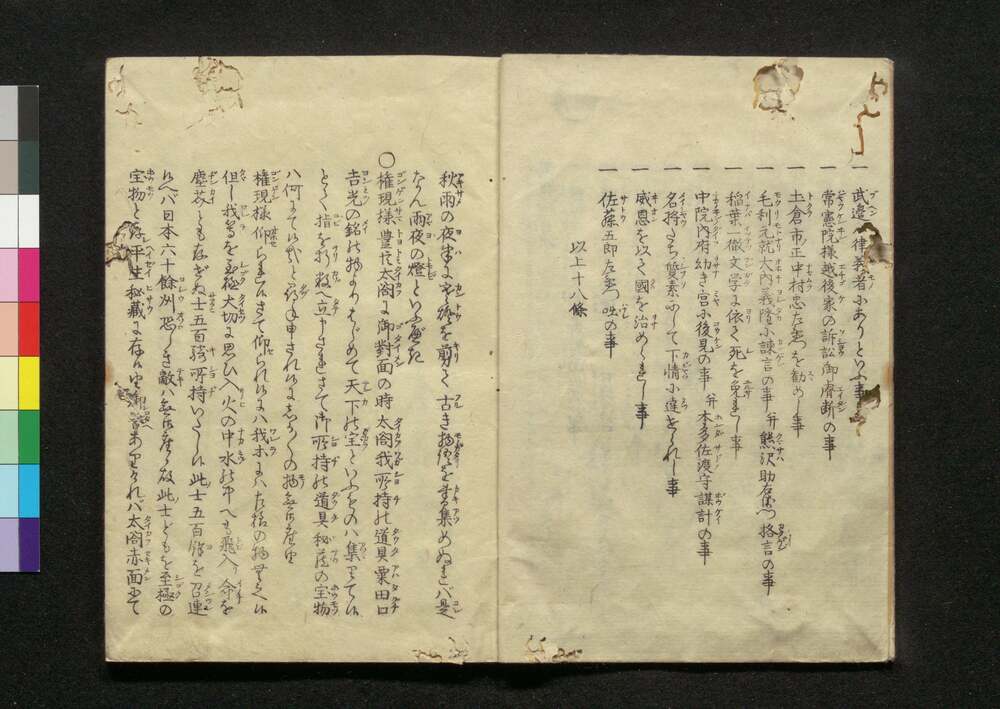 一 武邊ハ律義者にありといふ事
一 常憲院様越後家の訴訟御裁断の事
一 土倉市正中村忠左衛門を勧めし事
一 毛利元就大内義隆に諫言の事并熊沢助右衛門格言の事
一 稲葉一徹文学に依て死を免れし事
一 中院内府幼き宮に後見の事并本多佐渡守謀計の事
一 名将たち質素にして下情に達せられし事
一 威恩を以て國を治めらし事
一 佐藤五郎左衛門咄の事
以上十八條
秋雨の夜半に燈を剪て古き物語をかき集めぬれバ是
なん雨夜の燈といふ
○権現様豊臣太閤に御對面の時太閤我所持の道具粟田口
吉光の銘の物よりはじめて天下の宝といふものハ集りて候
とて指を折数へ立申されさて御所持の道具秘蔵の宝物
ハ何にて候哉と尋申されけるにしかしかの物無御座由
権現様仰られけるさて仰られけるハ我等にハ左様の物無之候
但し我等を至極大切に思ひ入火の中水の中へも飛入命を
塵芥とも存ぜぬ士五百騎所持いたし候此士五百騎を召連
候へバ日本六十餘州恐しき敵ハ無御座候故此士どもを至極の
宝物と存平生秘蔵に存候由御答ありけれバ太閤赤面にて